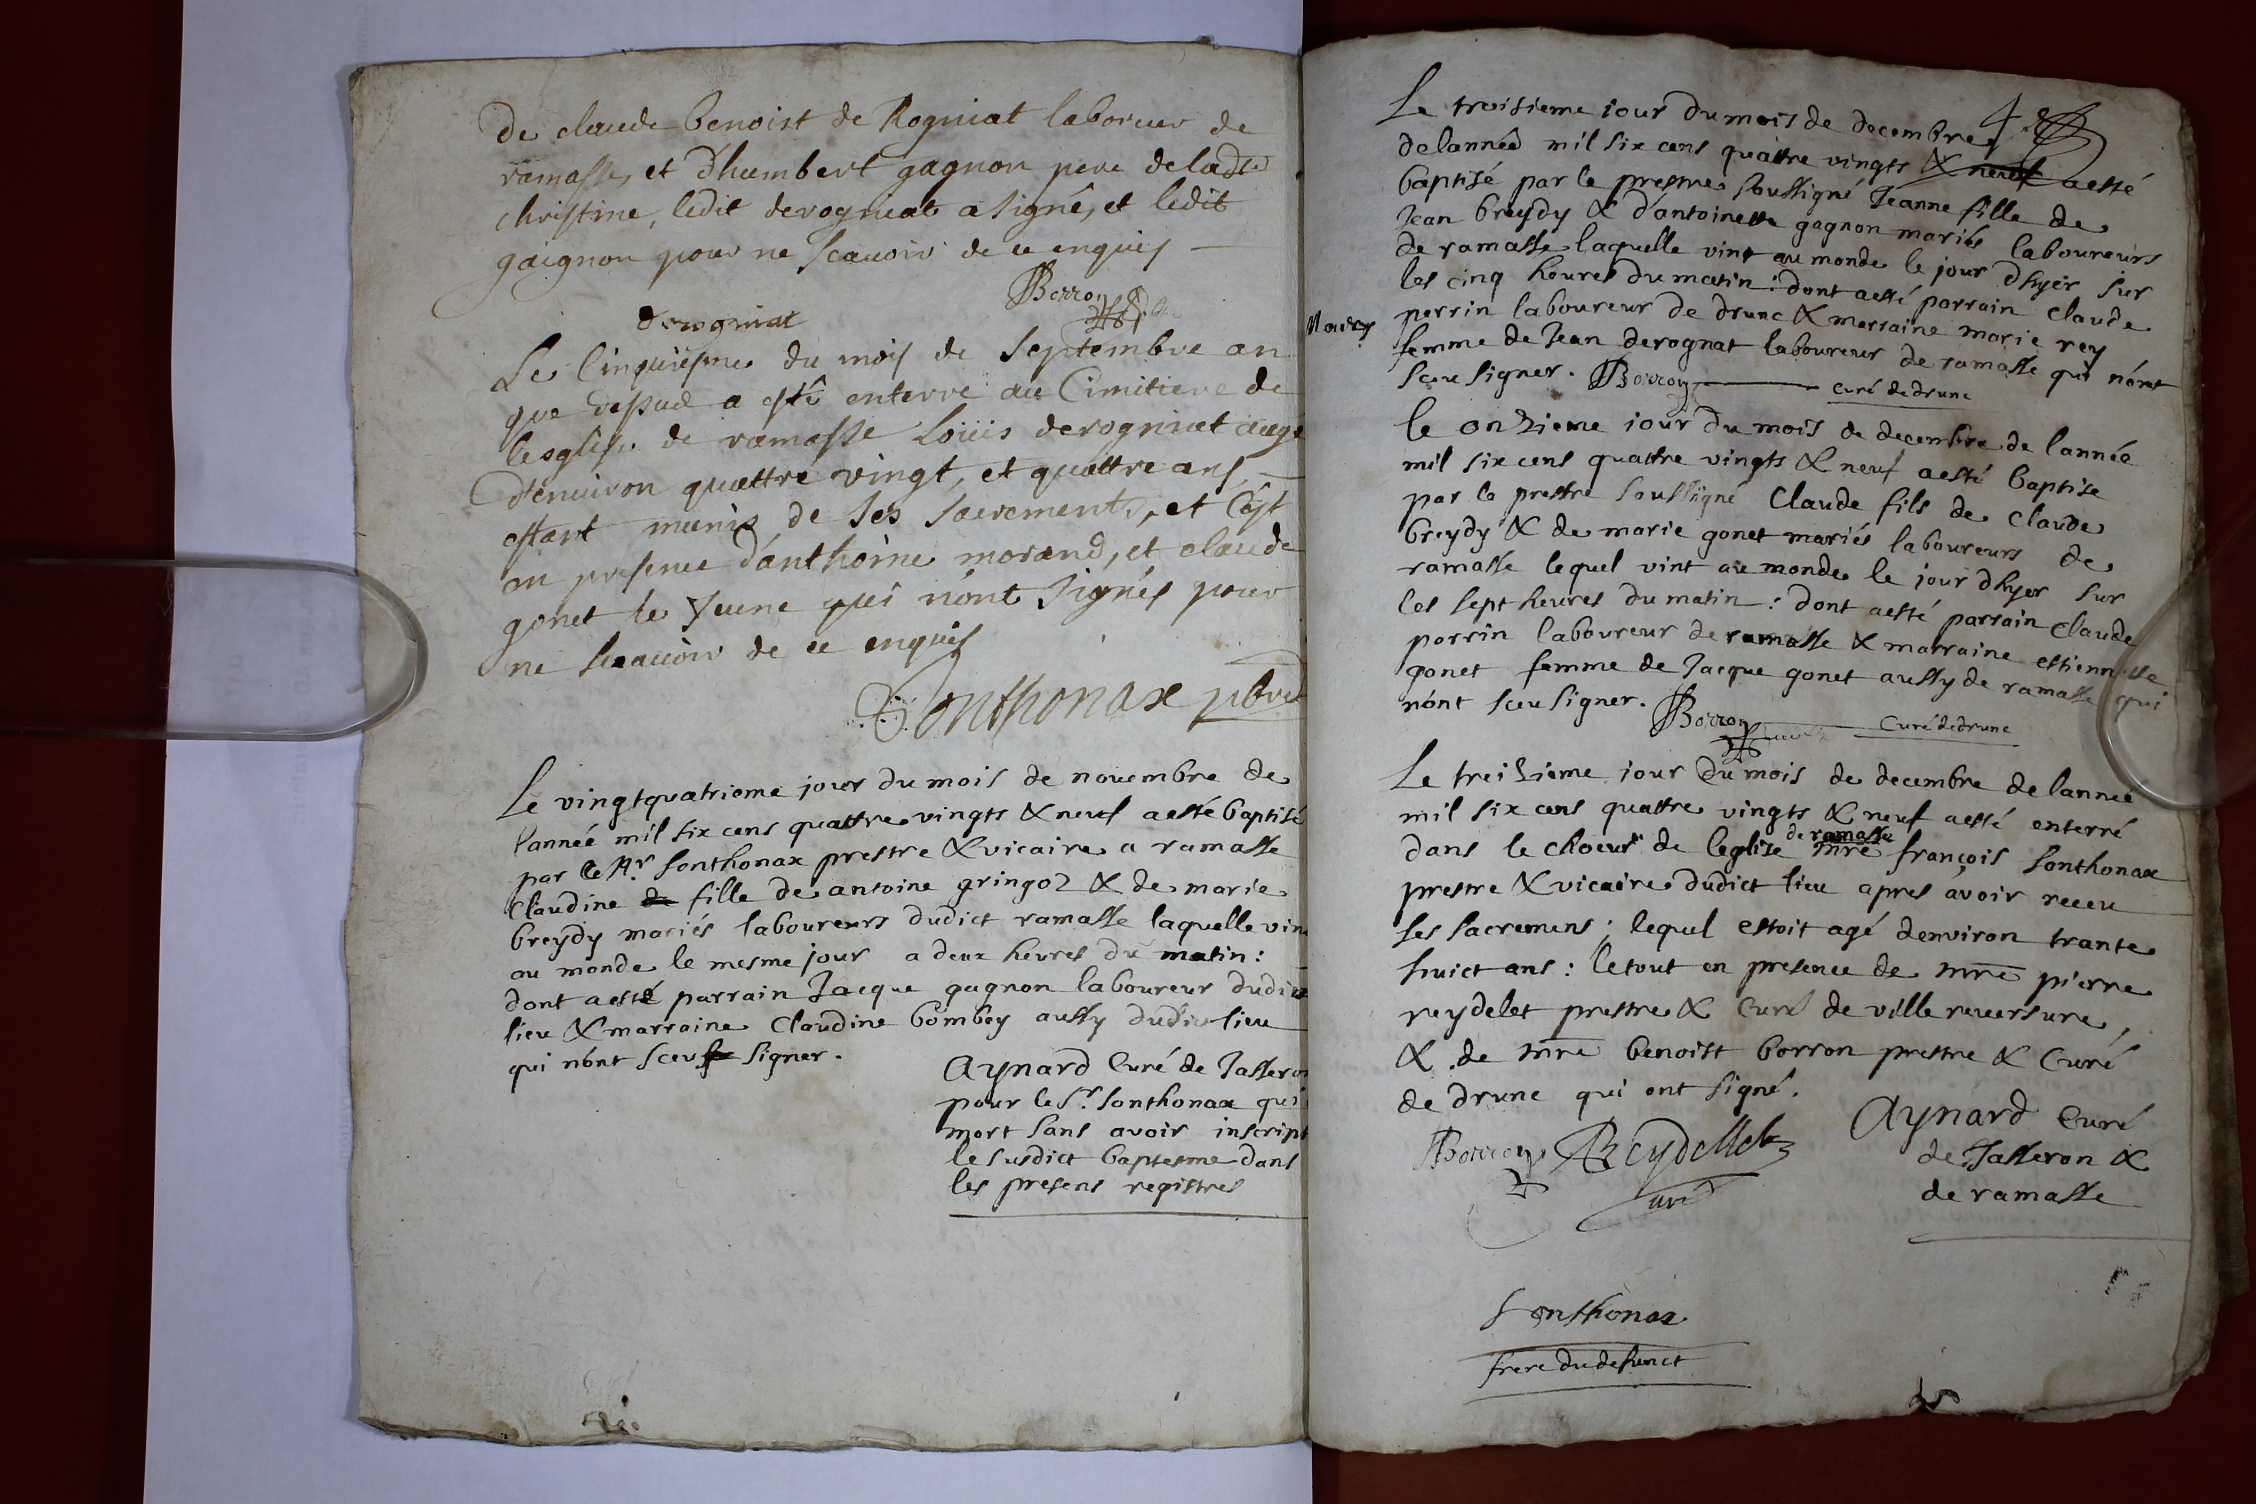 de claude benoist de Rogniat laboureur de
ramasse, et d'humbert gagnon pere de ladte
christine, ledit derogniat a signé, et ledit
gaignon pour ne scauoir de ce enquis
Borron
derogniat
Le Cinquiesme du mois de Septembre an
que dessus a esté enterré au Cimitiere de
lesglise de ramasse Loüis derogniat aagé
d'enuiron quattre vingt, et quattre ans,
estant munis de ses sacrements, et C'est
en presence d'anthoine morand, et claude
gonet le Jeune qui n'ont signés pour
ne scauoir de ce enquis
Sonthonax pbre
Le vingtquatrieme jour du mois de nouembre de
lannée mil six cens quattre vingts & neuf aesté baptisé
par le Sr. Sonthonax prestre & vicaire a ramasse
Claudine de fille de antoine gringoz & de marie
breydy mariés laboureurs dudict ramasse laquelle vin
au monde le mesme jour a deux heures du matin:
dont aesté parrain Jacque gagnon laboureur dudict
lieu & marraine Claudine bombey aussy dudict lieu
qui n'ont sceu signer.
Aynard Curé de Jasseron
pour le Sr. Sonthonax qui
mort sans avoir inscript
le susdict baptesme dans
les presens registres
Le troisieme iour du mois de decembre
4
delanneé mil six cens quattre vingts & neuf aesté
baptisé par le prestre soussigné Jeanne fille de
Jean breydy & d'antoinette gagnon mariés laboureurs
de ramasse laquelle vint au monde le jour d'hyer sur
les cinq heures du matin: dont aesté parrain claude
perrin laboureur de drunc & marraine marie rey
femme de Jean derognat laboureur de ramasse qui n'ont
sceu signer. Borron curé de drunc
le onzieme iour du mois de decembre de lannée
mil six cens quattre vingts & neuf aesté baptise
par le prestre soussigné Claude fils de Claude
breydy & de marie gonet mariés laboureurs de
ramasse lequel vint au monde le jour d'hyer sur
les sept heures du matin: dont aesté parrain Claude
perrin laboureur de ramasse & marraine estiennette
gonet femme de Jacque gonet aussy de ramasse qui
n'ont sceu signer. Borron Curé de drunc
Le treizieme iour du mois de decembre de lanneé
mil six cens quattre vingts & neuf aesté enterré
de ramasse
dans le choeur de leglise mre françois Sonthonax
prestre & vicaire dudict lieu apres avoir receu
ses sacremens; lequel estoit agé denviron trante
huict ans: le tout en presence de mre pierre
reydelet prestre & Curé de ville reversure,
& de mre benoist borron prestre & Curé
de drunc qui ont signé.
Borron Reydellet
curé
Aynard Curé
de Jasseron &
de ramasse
Sonthonax
frere du defunct